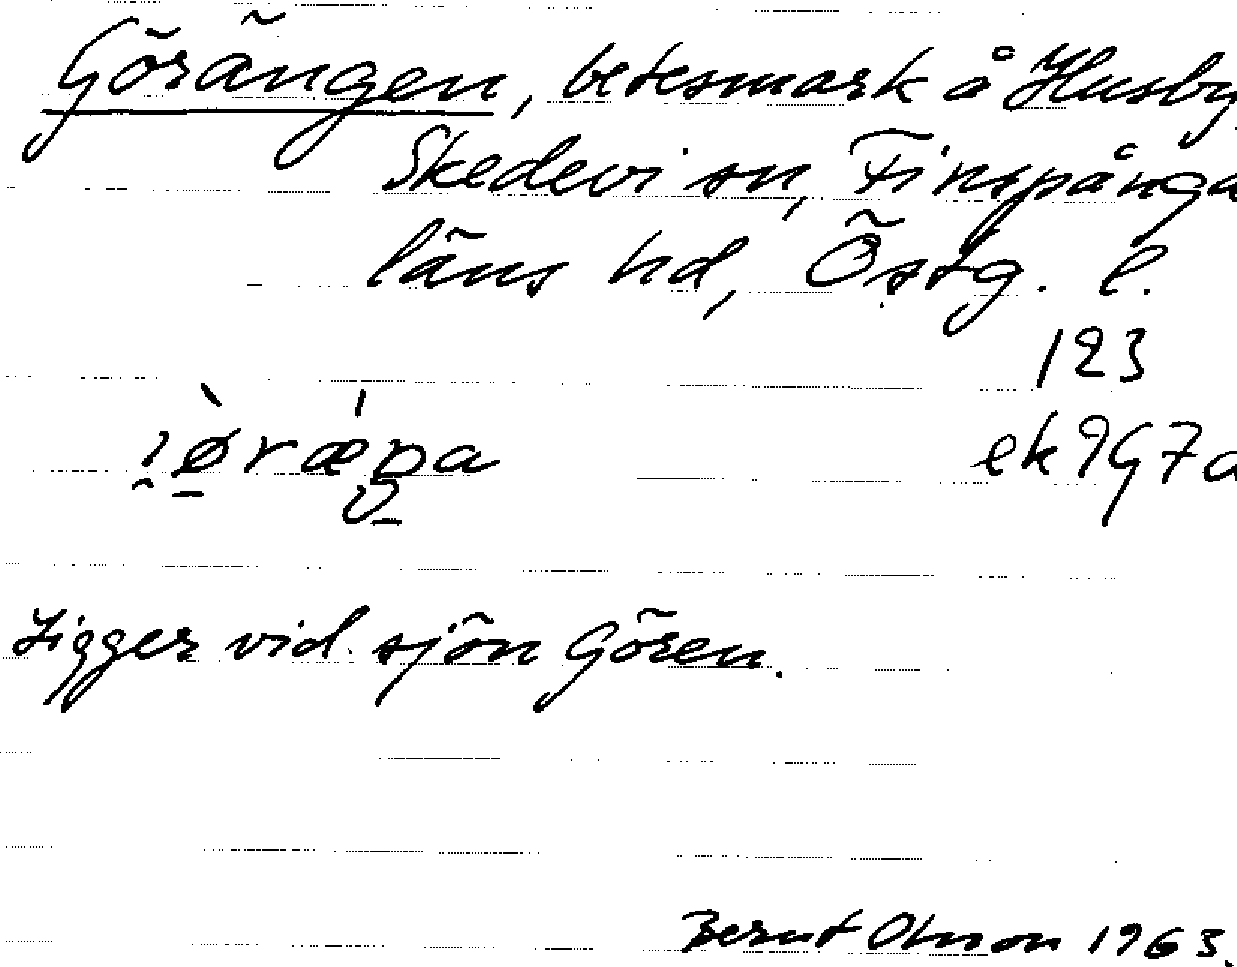 Görängen, betesmark å Husby
Skedevi sn, Finspånga
läns hd, Östg. l.
123
ek 9G7a
Ligger vid sjön Gören.
Bernt Olsson 1963.